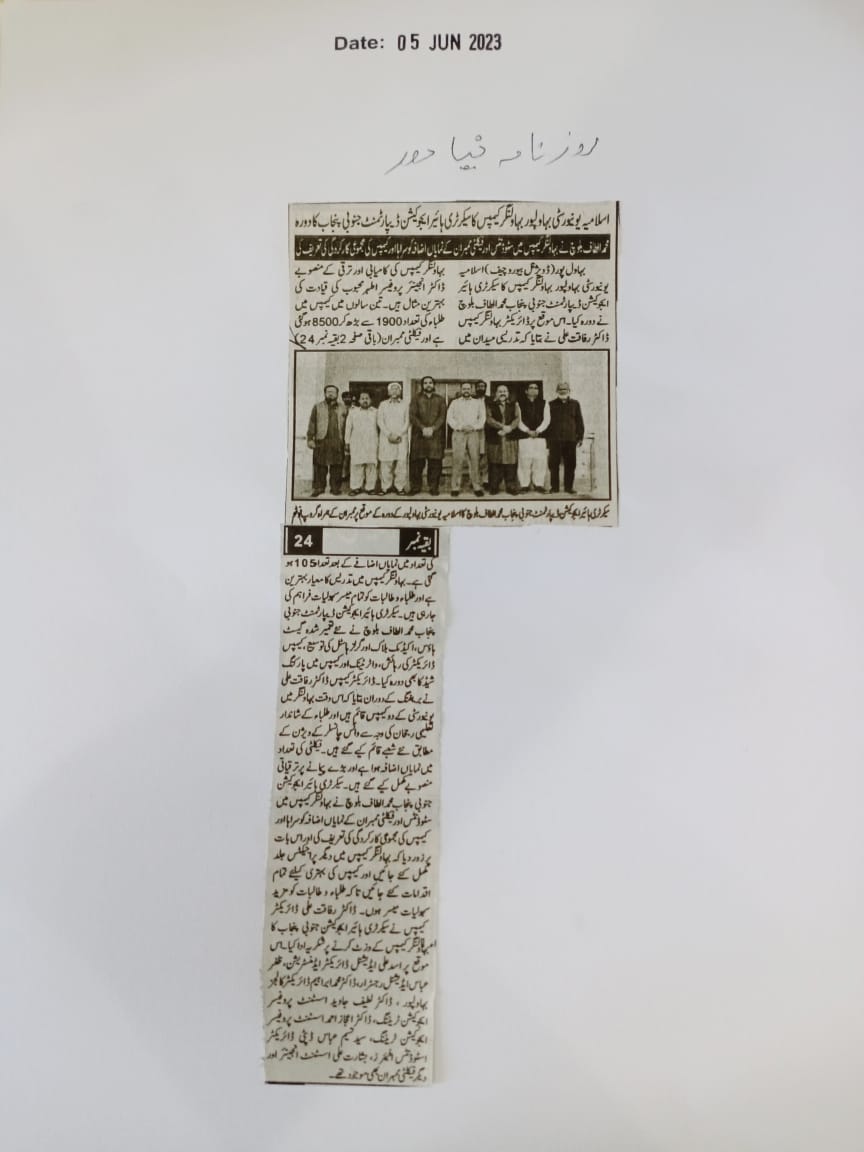 Date: 05 JUN 2023
روزنامہ نیا دور
اسلامیہ یونیورسٹی بہاولپور بہاولنگر کیمپس کا سیکرٹری ہائیر ایجوکیشن ڈیپارٹمنٹ جنوبی پنجاب کا دورہ
محمد الطاف بلوچ نے بہاولنگر کیمپس میں سٹوڈنٹس اور فیکلٹی ممبران کے نمایاں اضافہ کو سراہا اور کیمپس کی مجموعی کارکردگی کی تعریف کی
بہاول پور (ڈویژنل بیورو چیف) اسلامیہ
یونیورسٹی بہاولپور بہاولنگر کیمپس کا سیکرٹری ہائیر
ایجوکیشن ڈیپارٹمنٹ جنوبی پنجاب محمد الطاف بلوچ
نے دورہ کیا۔ اس موقع پر ڈائریکٹر بہاولنگر کیمپس
ڈاکٹر رفاقت علی نے بتایا کہ تدریسی میدان میں
بہاولنگر کیمپس کی کامیابی اور ترقی کے منصوبے
ڈاکٹر انجینئر پروفیسر اطہر محبوب کی قیادت کی
بہترین مثال ہیں۔ تین سالوں میں کیمپس میں
طلباء کی تعداد 1900 سے بڑھ کر 8500 ہو گئی
ہے اور فیکلٹی ممبران (باقی صفحہ 2 بقیہ نمبر 24)
سیکرٹری ہائیر ایجوکیشن ڈیپارٹمنٹ جنوبی پنجاب محمد الطاف بلوچ کا اسلامیہ یونیورسٹی بہاولپور کے دورہ کے موقع پر ممبران کے ہمراہ گروپ فوٹو
بقیہ نمبر 24
کی تعداد میں نمایاں اضافے کے بعد تعداد 105 ہو
گئی ہے۔ بہاولنگر کیمپس میں تدریس کا معیار بہترین
ہے اور طلباء و طالبات کو تمام میسر سہولیات فراہم کی
جا رہی ہیں۔ سیکرٹری ہائیر ایجوکیشن ڈیپارٹمنٹ جنوبی
پنجاب محمد الطاف بلوچ نے نئے تعمیر شدہ گیسٹ
ہاؤس، اکیڈمک بلاک اور گرلز ہاسٹل کی توسیع، کیمپس
ڈائریکٹر کی رہائش، واٹر ٹینک اور کیمپس میں پارکنگ
شیڈ کا بھی دورہ کیا۔ ڈائریکٹر کیمپس ڈاکٹر رفاقت علی
نے بریفنگ کے دوران بتایا کہ اس وقت بہاولنگر میں
یونیورسٹی کے دو کیمپس قائم ہیں اور طلباء کے شاندار
تعلیمی رجحان کی وجہ سے وائس چانسلر کے ویژن کے
مطابق نئے شعبے قائم کیے گئے ہیں۔ فیکلٹی کی تعداد
میں نمایاں اضافہ ہوا ہے اور بڑے پیمانے پر ترقیاتی
منصوبے مکمل کیے گئے ہیں۔ سیکرٹری ہائیر ایجوکیشن
جنوبی پنجاب محمد الطاف بلوچ نے بہاولنگر کیمپس میں
سٹوڈنٹس اور فیکلٹی ممبران کے نمایاں اضافہ کو سراہا اور
کیمپس کی مجموعی کارکردگی کی تعریف کی اور اس بات
پر زور دیا کہ بہاولنگر کیمپس میں دیگر پراجیکٹس جلد
مکمل کئے جائیں اور کیمپس کی بہتری کیلئے تمام
اقدامات کئے جائیں تاکہ طلباء و طالبات کو مزید
سہولیات میسر ہوں۔ ڈاکٹر رفاقت علی ڈائریکٹر
کیمپس نے سیکرٹری ہائیر ایجوکیشن جنوبی پنجاب کا
بہاولنگر کیمپس کے وزٹ کرنے پر شکریہ ادا کیا۔ اس
موقع پر اسد علی ایڈیشنل ڈائریکٹر ایڈمنسٹریشن، ظفر
عباس ایڈیشنل رجسٹرار، ڈاکٹر محمد ابراہیم ڈائریکٹر کالجز
بہاولپور، ڈاکٹر لطیف جاوید اسسٹنٹ پروفیسر
ایجوکیشن ٹریننگ، ڈاکٹر اعجاز احمد اسسٹنٹ پروفیسر
ایجوکیشن ٹریننگ، سید عباس ڈپٹی ڈائریکٹر
سٹوڈنٹس افیئرز، بشارت علی اسسٹنٹ انجینئر اور
دیگر فیکلٹی ممبران بھی موجود تھے۔